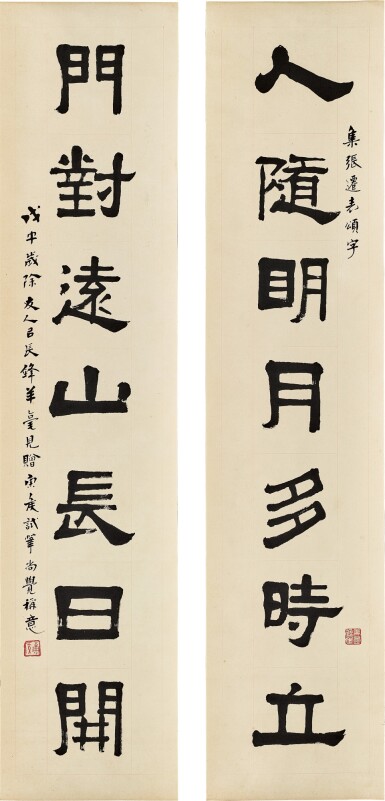 人隨明月多時立
集張遷表頌字
門對遠山長日開
戊午歲除友人以長鋒羊毫見贈寅夜試筆尚覺稱意